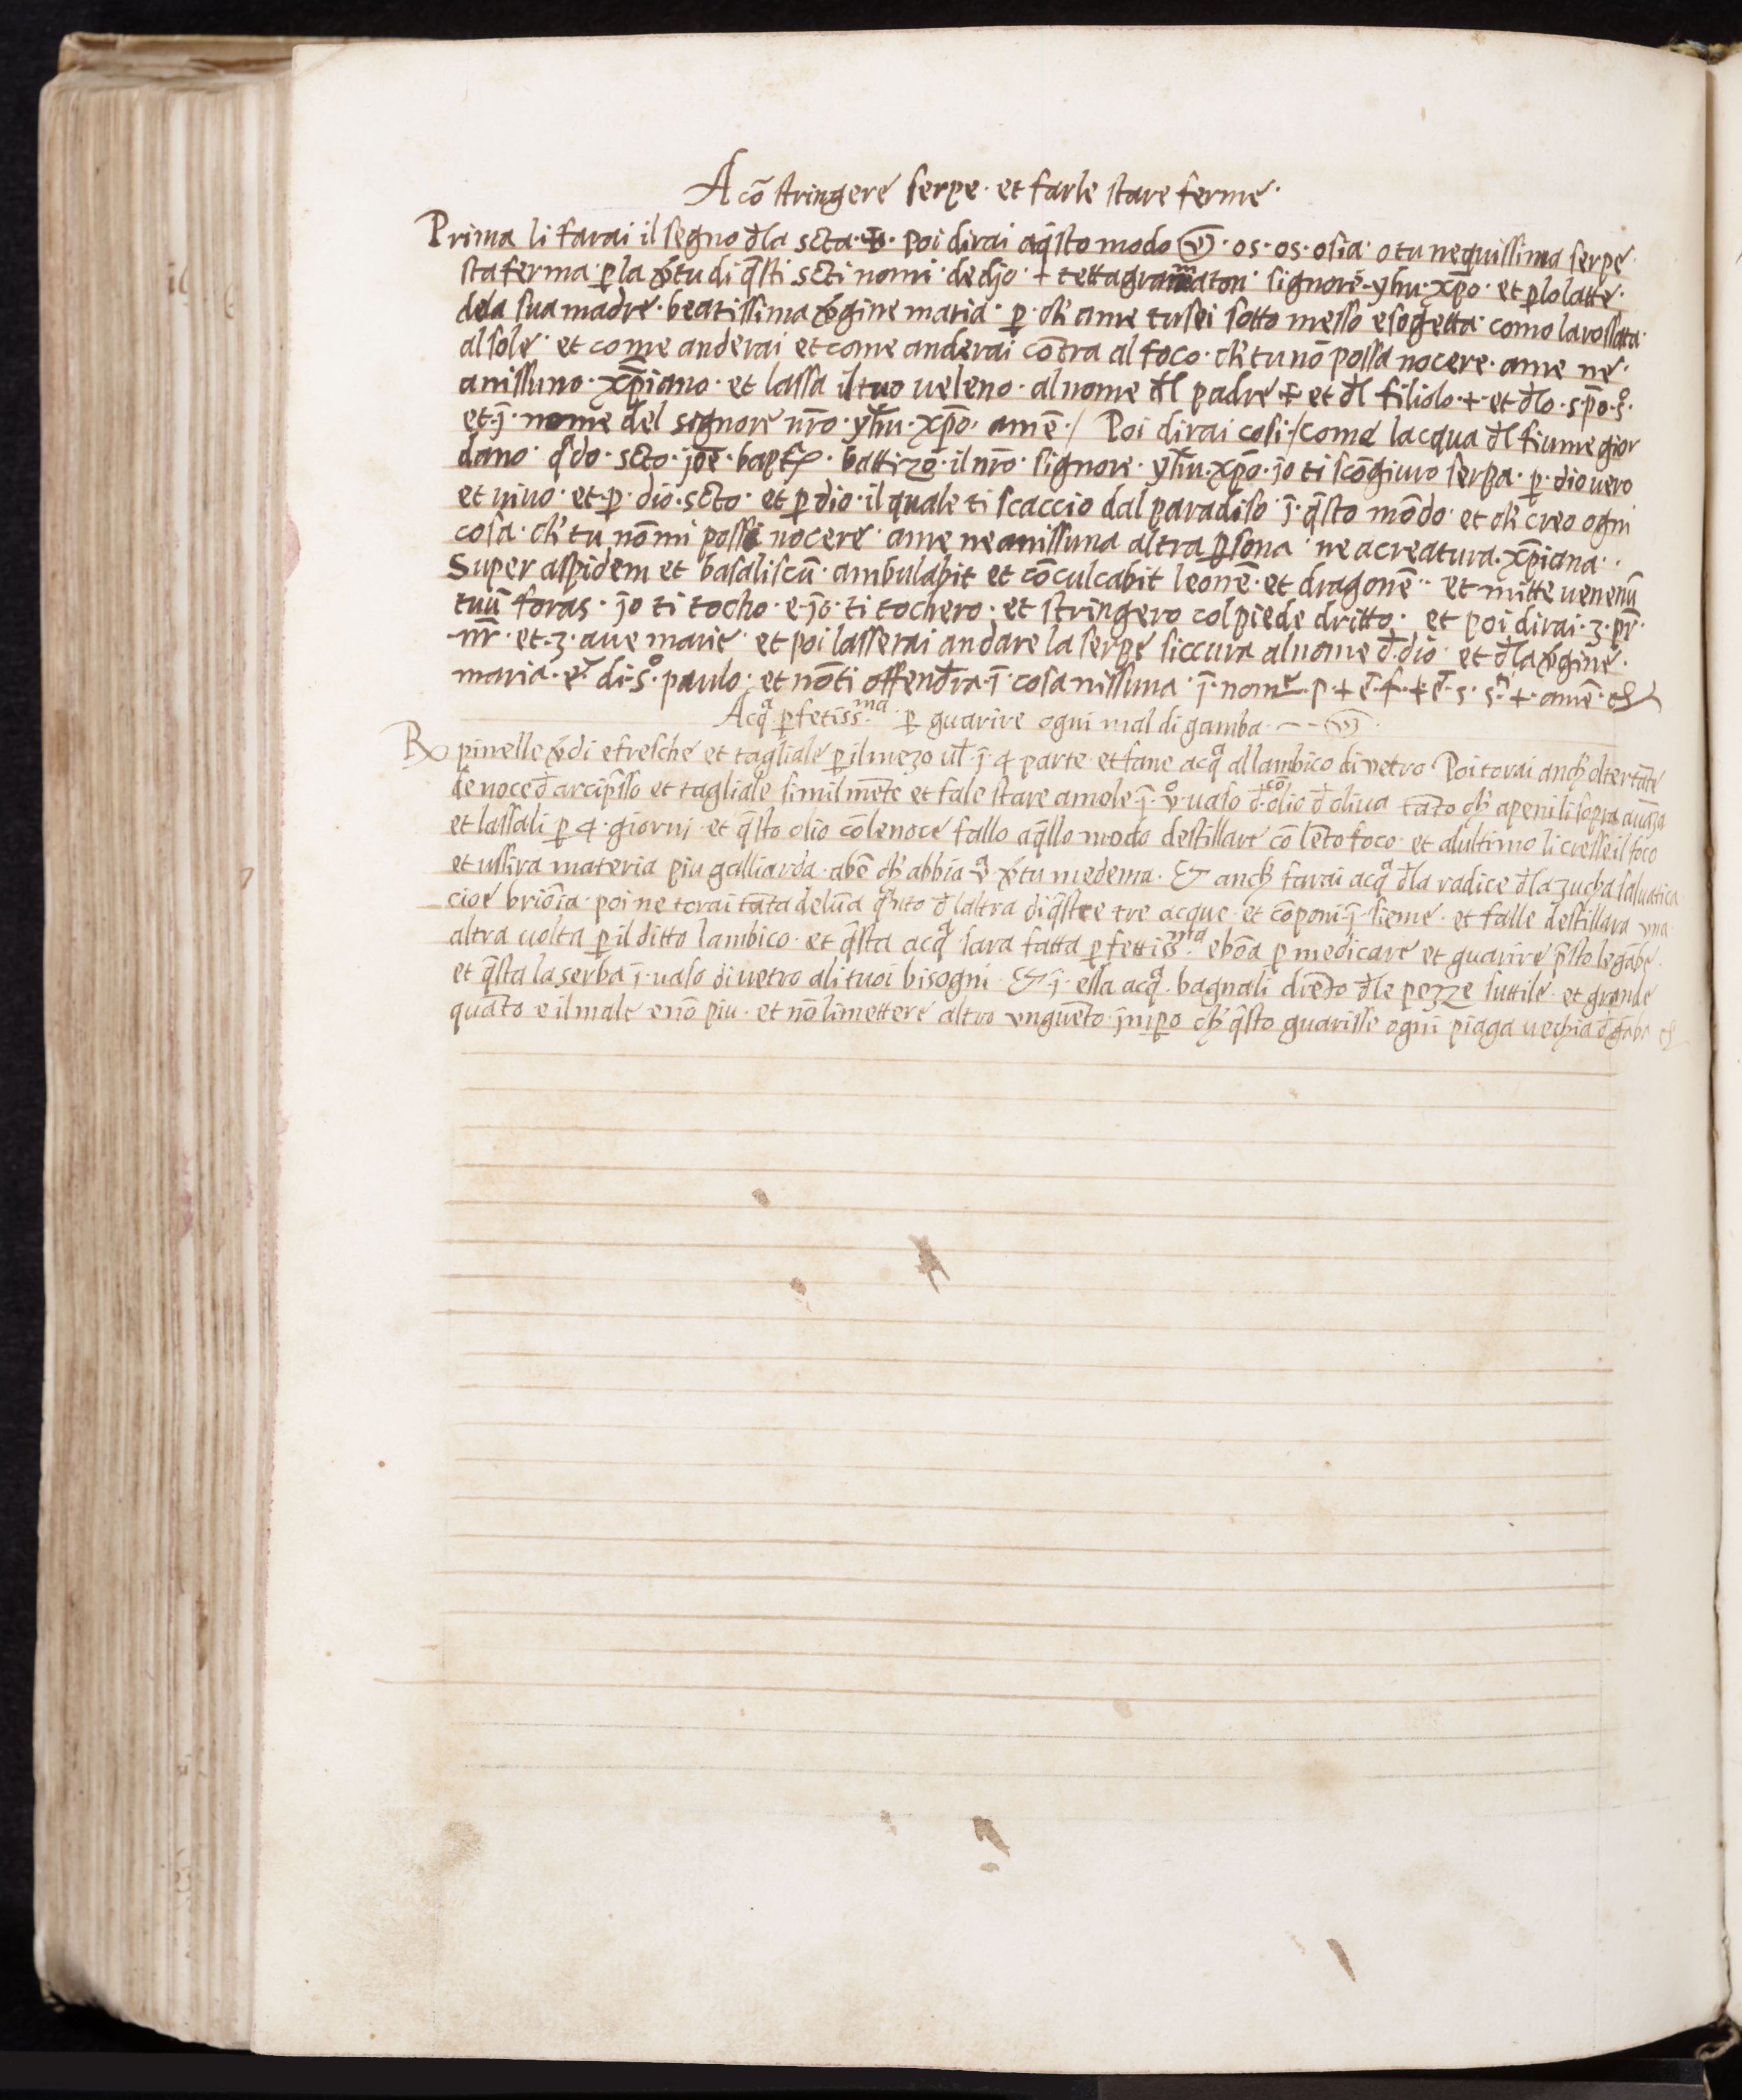 A cō stringere serpe · et farle stare ferme ·
Prima li farai il segno đla scta · ✠ · poi dirai aq̄sto modo · os · os · osia · o tu nequissima serpe
sta ferma · ꝑ la v̄tu di q̄sti scti nomi · de djo · + tettagramaton · signore · yhu · xp̄o · et ꝑ lo latte ·
dela sua madre · beatissima v̄gine maria · ꝑ · ch' ame tu sei sotto messo e sogetta · como la rossata
al sole · et come anderai et come anderai cōtra al foco · ch' tu nō possa nocere · ame ne ·
anissuno · xp̄iano · et lassa il tuo ueleno · al nome đl padre + et đl filiolo · + · et đlo · sp̄o · s̊ ·
et · j̄ · nome del signore nr̄o · yh̄u · xp̄o · amē · / Poi dirai cosi · / come lacqua đl fiume gior
dano · q̄do · scto · joē · bapt · battizo · il nr̄o · signore · yh̄u · xp̄o · jo ti scōgiuro serpa · ꝑ · dio uero
et uiuo · et · ꝑ · dio · scto · et ꝑ dio · il quale ti scaccio dal paradiso · j̄ · q̄sto mōdo · et ch' creo ogni
cosa · ch' tu nō mi possi nocere · ame ne anissuna altra ꝑsona · ne a creatura · xp̄iana · ·
Super aspidem et basaliscū · ambulabit et cōculcabit leonē · et dragonē · · et mitte uenenū
tuū foras · jo ti tocho · e · jo · ti tochero · et stringero col piede dritto · et poi dirai · 3 · pr̄ ·
· nr̄ · et · 3 · aue marie · et poi lasserai andare la serpe siccura al nome đ · dio · et đla v̄gine ·
maria · e · di · s̊ · paulo · et nō ti offenđra · j̄ · cosa nissuna · j̄ · nome · p · + e · f · + e · s · s · + · amē ·
Acqa ꝑfetiss.ma ꝑ guarire ogni mal di gamba ·
℞ pinelle v̄di e fresche et tagliale ꝑ il mezo ul̄ · j̄ · 4 parte · et fane acqa al lambico di vetro Poi torai anch altertāte
de noce đ arcip̄sso et tagliale similmēte et fale stare amole · j̄ · v̊ · uaso đ · olio đ oliua tāto ch' apeni li sopra auāza
et lassali ꝑ 4 · giorni · et q̄sto olio cō le noce fallo aq̄llo modo destillare cō lēto foco · et alultimo li cresse il foco
et ussira materia piu galliarda · abē ch' abbia · v̄tu medema · Et anch farai acqa đla radice đla zucha saluatica
cioe briōia · poi ne torai tāta deluā q̄to đ laltra di q̄ste tre acque · et cōponi · j̄ · sieme · et falle destillara vna
altra uolta ꝑ il ditto lambico · et q̄sta acqa sara fatta ꝑfettiss.ma ebōa ꝑ medicare et guarire p̄sto le gābe ·
et q̄sta la serba j̄ · uaso di uetro ali tuoi bisogni · Et · j̄ · essa acqa · bagnali diēto đle pezze suttile · et grande
quāto e il male e nō piu · et nō li mettere altro vnguēto · j̄mꝑo ch' q̄sto guarisse ogni piaga uechia đ gāba